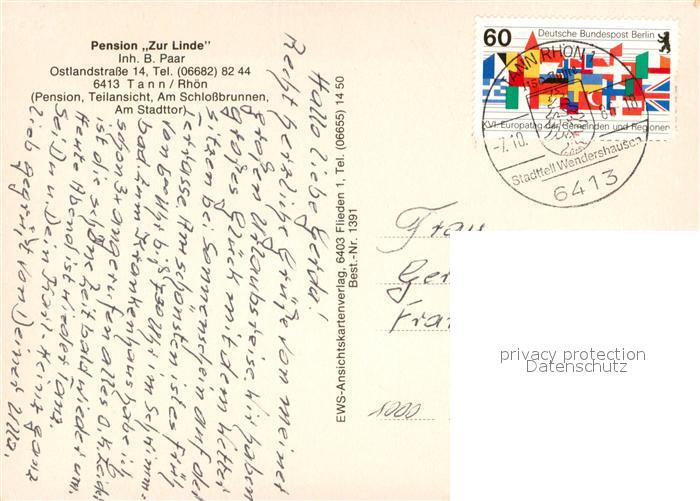 Pension „Zur Linde"
Inh. B. Paar
Ostlandstraße 14, Tel. (06682) 82 44
6413 Tann / Rhön
(Pension, Teilansicht, Am Schloßbrunnen,
Am Stadttor)
Hallo liebe Gerda!
Recht herzliche Grüße von meiner
großen Urlaubsreise. Wir haben
großes Glück mit dem Wetter
sitzen bei Sonnenschein auf der
Terrasse. Am schönsten ist es früh
von 6 Uhr bis 7 30 Uhr im Schwimm-
bad. Im Krankenhaus habe ich
schon 3x angerufen alles o.k. Leider
ist die schöne Zeit bald wieder um.
Heute Abend ist wieder Tanz.
Sei Du u. Dein Karl-Heinz ganz
lieb gegrüßt von Deiner
EWS-Ansichtskartenverlag, 6403 Flieden 1, Tel. (06655) 14 50
Best.-Nr. 1391
60 Deutsche Bundespost Berlin
XVI. Europatag der Gemeinden und Regionen
TANN RHÖN
-7.10.
Stadtteil Wendershausen
6413
Frau
Ger
Fra
1000
privacy protection
Datenschutz